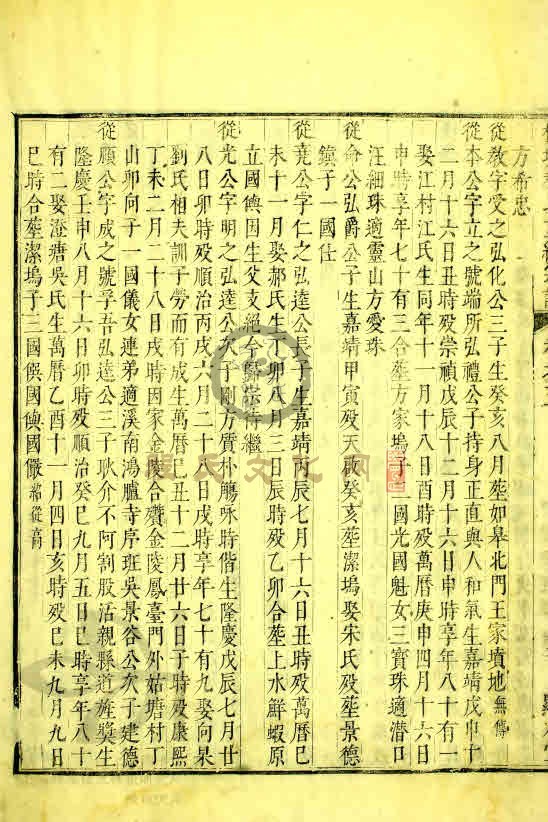 方希忠
從敎字受之弘化公三子生癸亥八月葬如皋北門王家墳地無傳
從本公字立之號端所弘禮公子持身正直與人和氣生嘉靖戊申十
二月十六日丑時殁崇禎戊辰十二月十六日申時享年八十有一
娶江村江氏生同年十一月十八日酉時殁萬曆庚申四月十六日
申時享年七十有三合葬方家塢子二國光國魁女三寳珠適潛口
汪細珠適靈山方愛珠
從命公弘爵公子生嘉靖甲寅殁天啟癸亥葬潔塢娶宋氏殁葬景德
鎮子一國仕
從堯公字仁之弘逵公長子生嘉靖丙辰七月十六日丑時殁萬曆巳
未十一月娶郝氏生乙卯八月三日辰時殁乙卯合葬上水鮮蝦原
立國傳因生父支絕今歸宗待繼
從光公字明之弘逵公次子剛方質朴觴咏時偕生隆慶戊辰七月廿
八日卯時殁順治丙戌六月二十八日戌時享年七十有九娶向杲
劉氏相夫訓子勞而有成生萬曆己丑十二月廿六日子時殁康熙
丁未二月二十八日戌時因家金陵合殯金陵鳳臺門外姑塘村丁
山卯向子一國儀女連弟適溪南鴻臚寺序班吳景谷公次子建德
從順公字成之號孚吾弘逵公三子耿介不阿割股活親縣道旌奬生
隆慶壬申八月十六日卯時殁順治癸巳九月五日巳時享年八十
有二娶澄塘吳氏生萬曆乙酉十一月四日亥時殁巳未九月九日
巳時合葬潔塢子三國俁國傳國儼紹從高